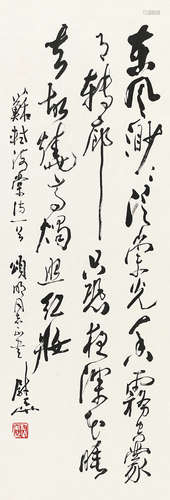 東風渺渺泛崇光香霧空蒙
月轉廊只恐夜深花睡
去故燒高燭照紅妝
蘇軾海棠詩一首 頌明同志